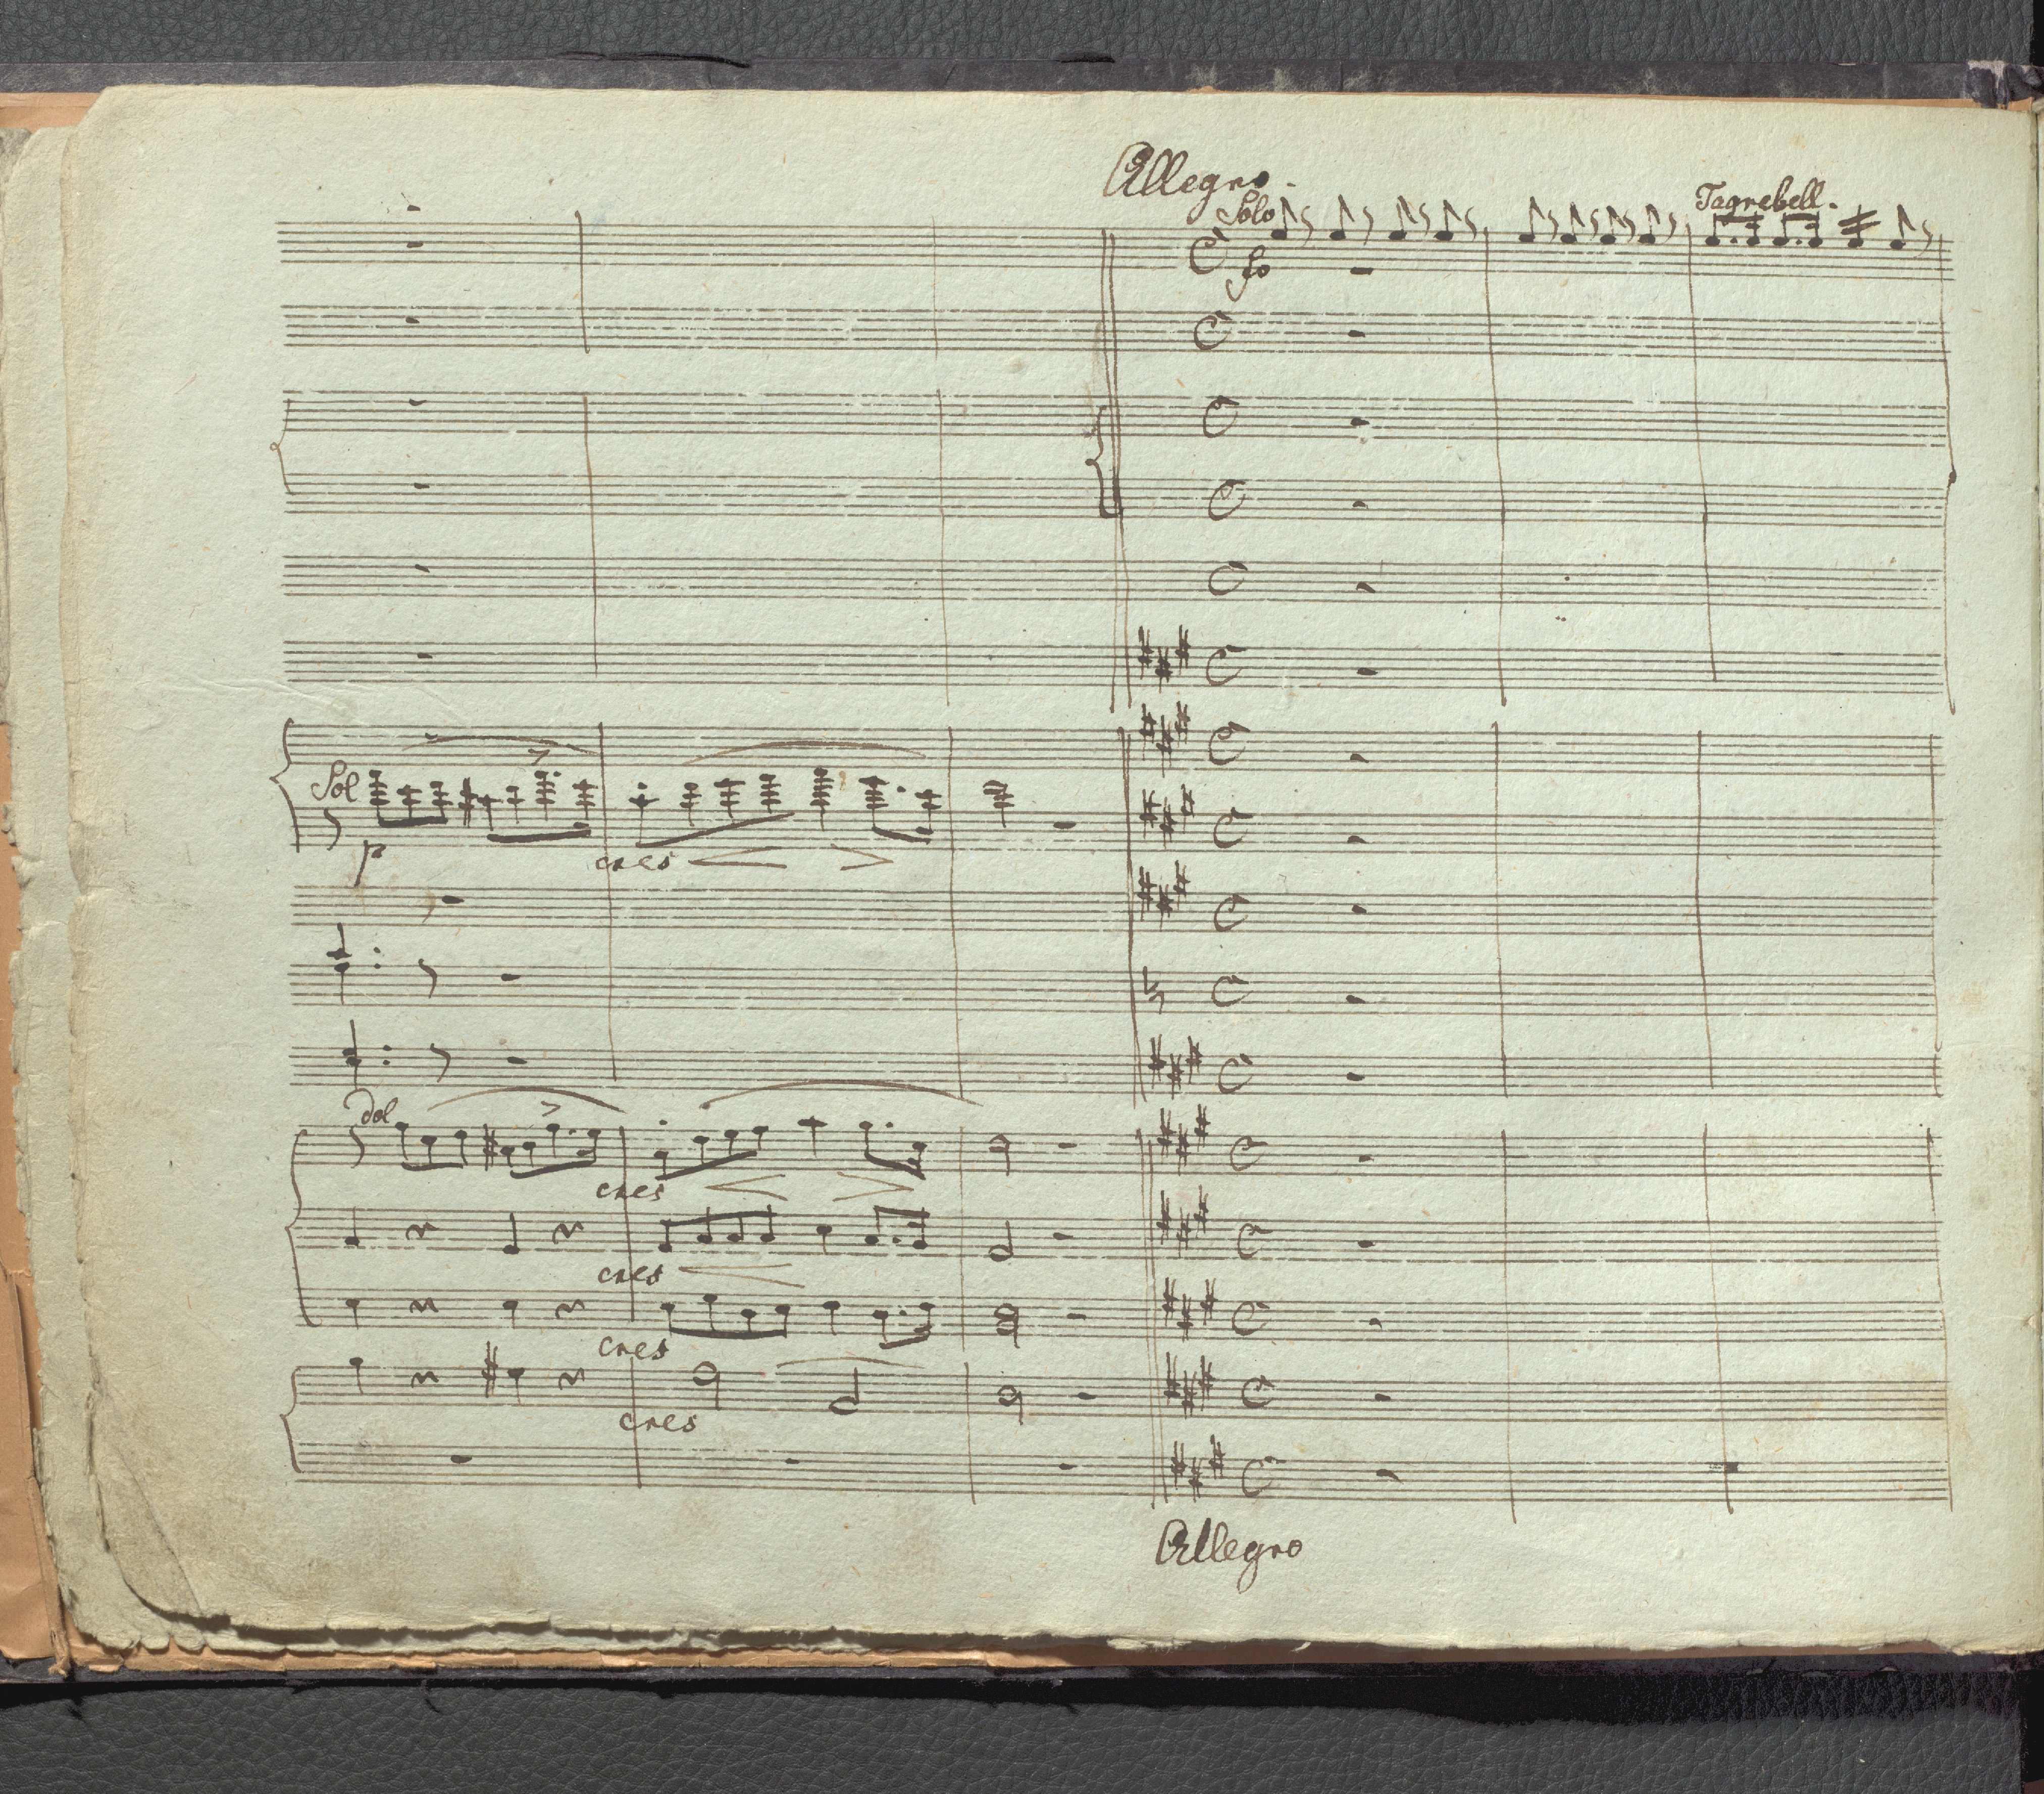 Allegro.
Solo
Tagrebell.
fo
Sol
p
cres
dol
cres
cres
cres
cres
Allegro